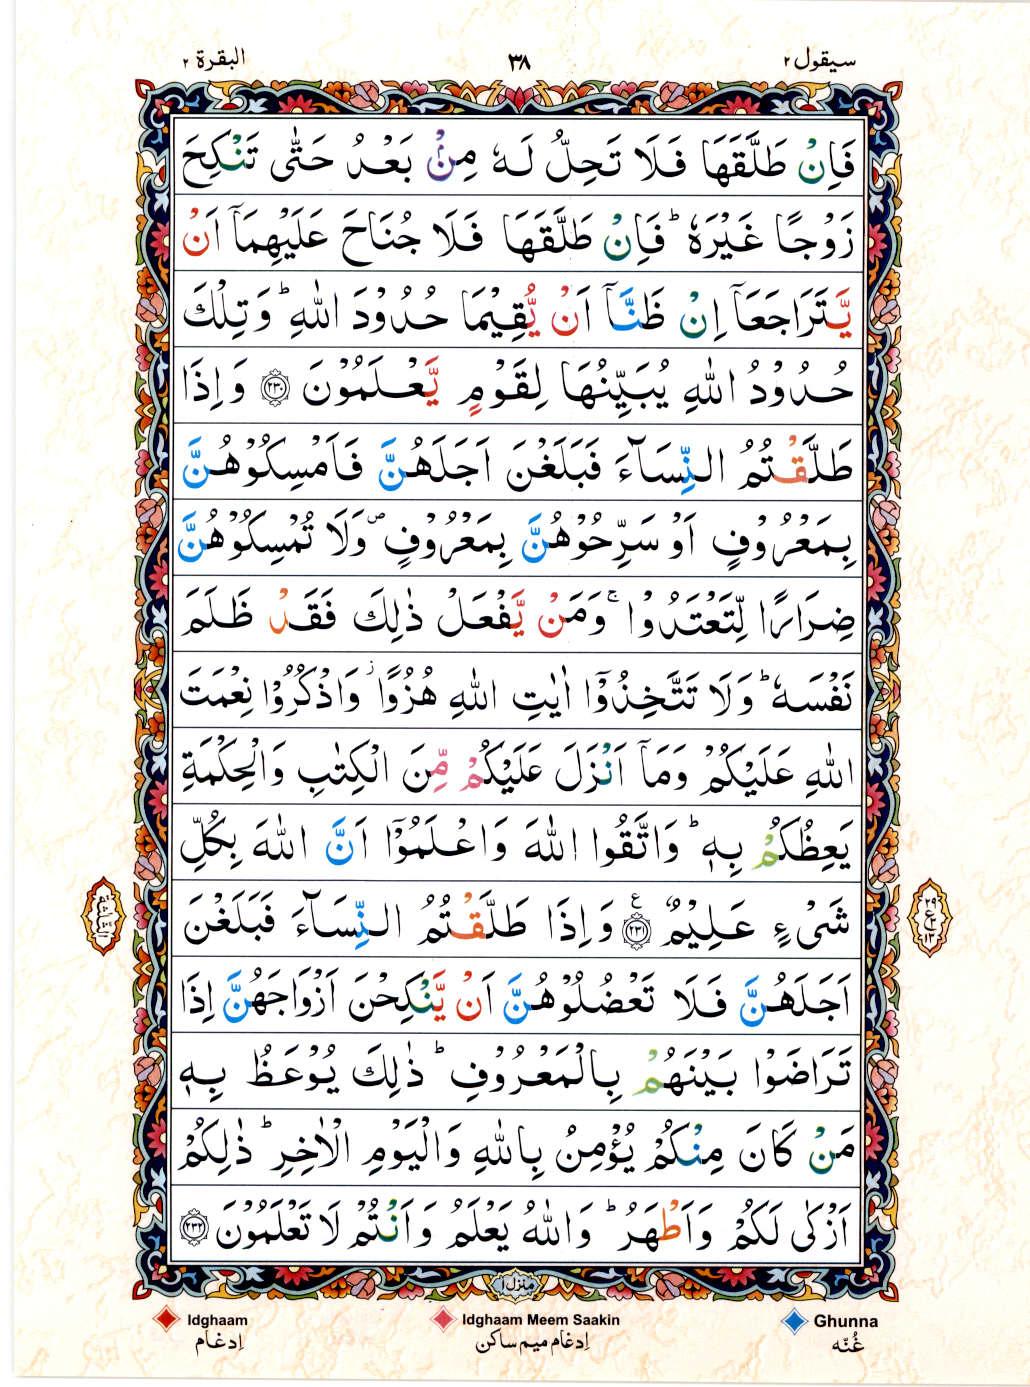 سيقول ٢
٣٨
البقرة ٢
فَاِنْ طَلَّقَهَا فَلَا تَحِلُّ لَهٗ مِنْۢ بَعْدُ حَتّٰى تَنْكِحَ
زَوْجًا غَيْرَهٗ ؕ فَاِنْ طَلَّقَهَا فَلَا جُنَاحَ عَلَيْهِمَاۤ اَنْ
يَّتَرَاجَعَاۤ اِنْ ظَنَّاۤ اَنْ يُّقِيْمَا حُدُوْدَ اللّٰهِ ؕ وَتِلْكَ
حُدُوْدُ اللّٰهِ يُبَيِّنُهَا لِقَوْمٍ يَّعْلَمُوْنَ ۝٢٣٠ وَاِذَا
طَلَّقْتُمُ النِّسَآءَ فَبَلَغْنَ اَجَلَهُنَّ فَاَمْسِكُوْهُنَّ
بِمَعْرُوْفٍ اَوْ سَرِّحُوْهُنَّ بِمَعْرُوْفٍ ۪ وَلَا تُمْسِكُوْهُنَّ
ضِرَارًا لِّتَعْتَدُوْا ۚ وَمَنْ يَّفْعَلْ ذٰلِكَ فَقَدْ ظَلَمَ
نَفْسَهٗ ؕ وَلَا تَتَّخِذُوْۤا اٰيٰتِ اللّٰهِ هُزُوًا ؗ وَاذْكُرُوْا نِعْمَتَ
اللّٰهِ عَلَيْكُمْ وَمَاۤ اَنْزَلَ عَلَيْكُمْ مِّنَ الْكِتٰبِ وَالْحِكْمَةِ
يَعِظُكُمْ بِهٖ ؕ وَاتَّقُوا اللّٰهَ وَاعْلَمُوْۤا اَنَّ اللّٰهَ بِكُلِّ
شَىْءٍ عَلِيْمٌ ۝٢٣١ ع وَاِذَا طَلَّقْتُمُ النِّسَآءَ فَبَلَغْنَ
اَجَلَهُنَّ فَلَا تَعْضُلُوْهُنَّ اَنْ يَّنْكِحْنَ اَزْوَاجَهُنَّ اِذَا
تَرَاضَوْا بَيْنَهُمْ بِالْمَعْرُوْفِ ؕ ذٰلِكَ يُوْعَظُ بِهٖ
مَنْ كَانَ مِنْكُمْ يُؤْمِنُ بِاللّٰهِ وَالْيَوْمِ الْاٰخِرِ ؕ ذٰلِكُمْ
اَزْكٰى لَكُمْ وَاَطْهَرُ ؕ وَاللّٰهُ يَعْلَمُ وَاَنْتُمْ لَا تَعْلَمُوْنَ ۝٢٣٢
منزل ١
Idghaam
Idghaam Meem Saakin
Ghunna
اِدغام
اِدغام میم ساکن
غُنّه